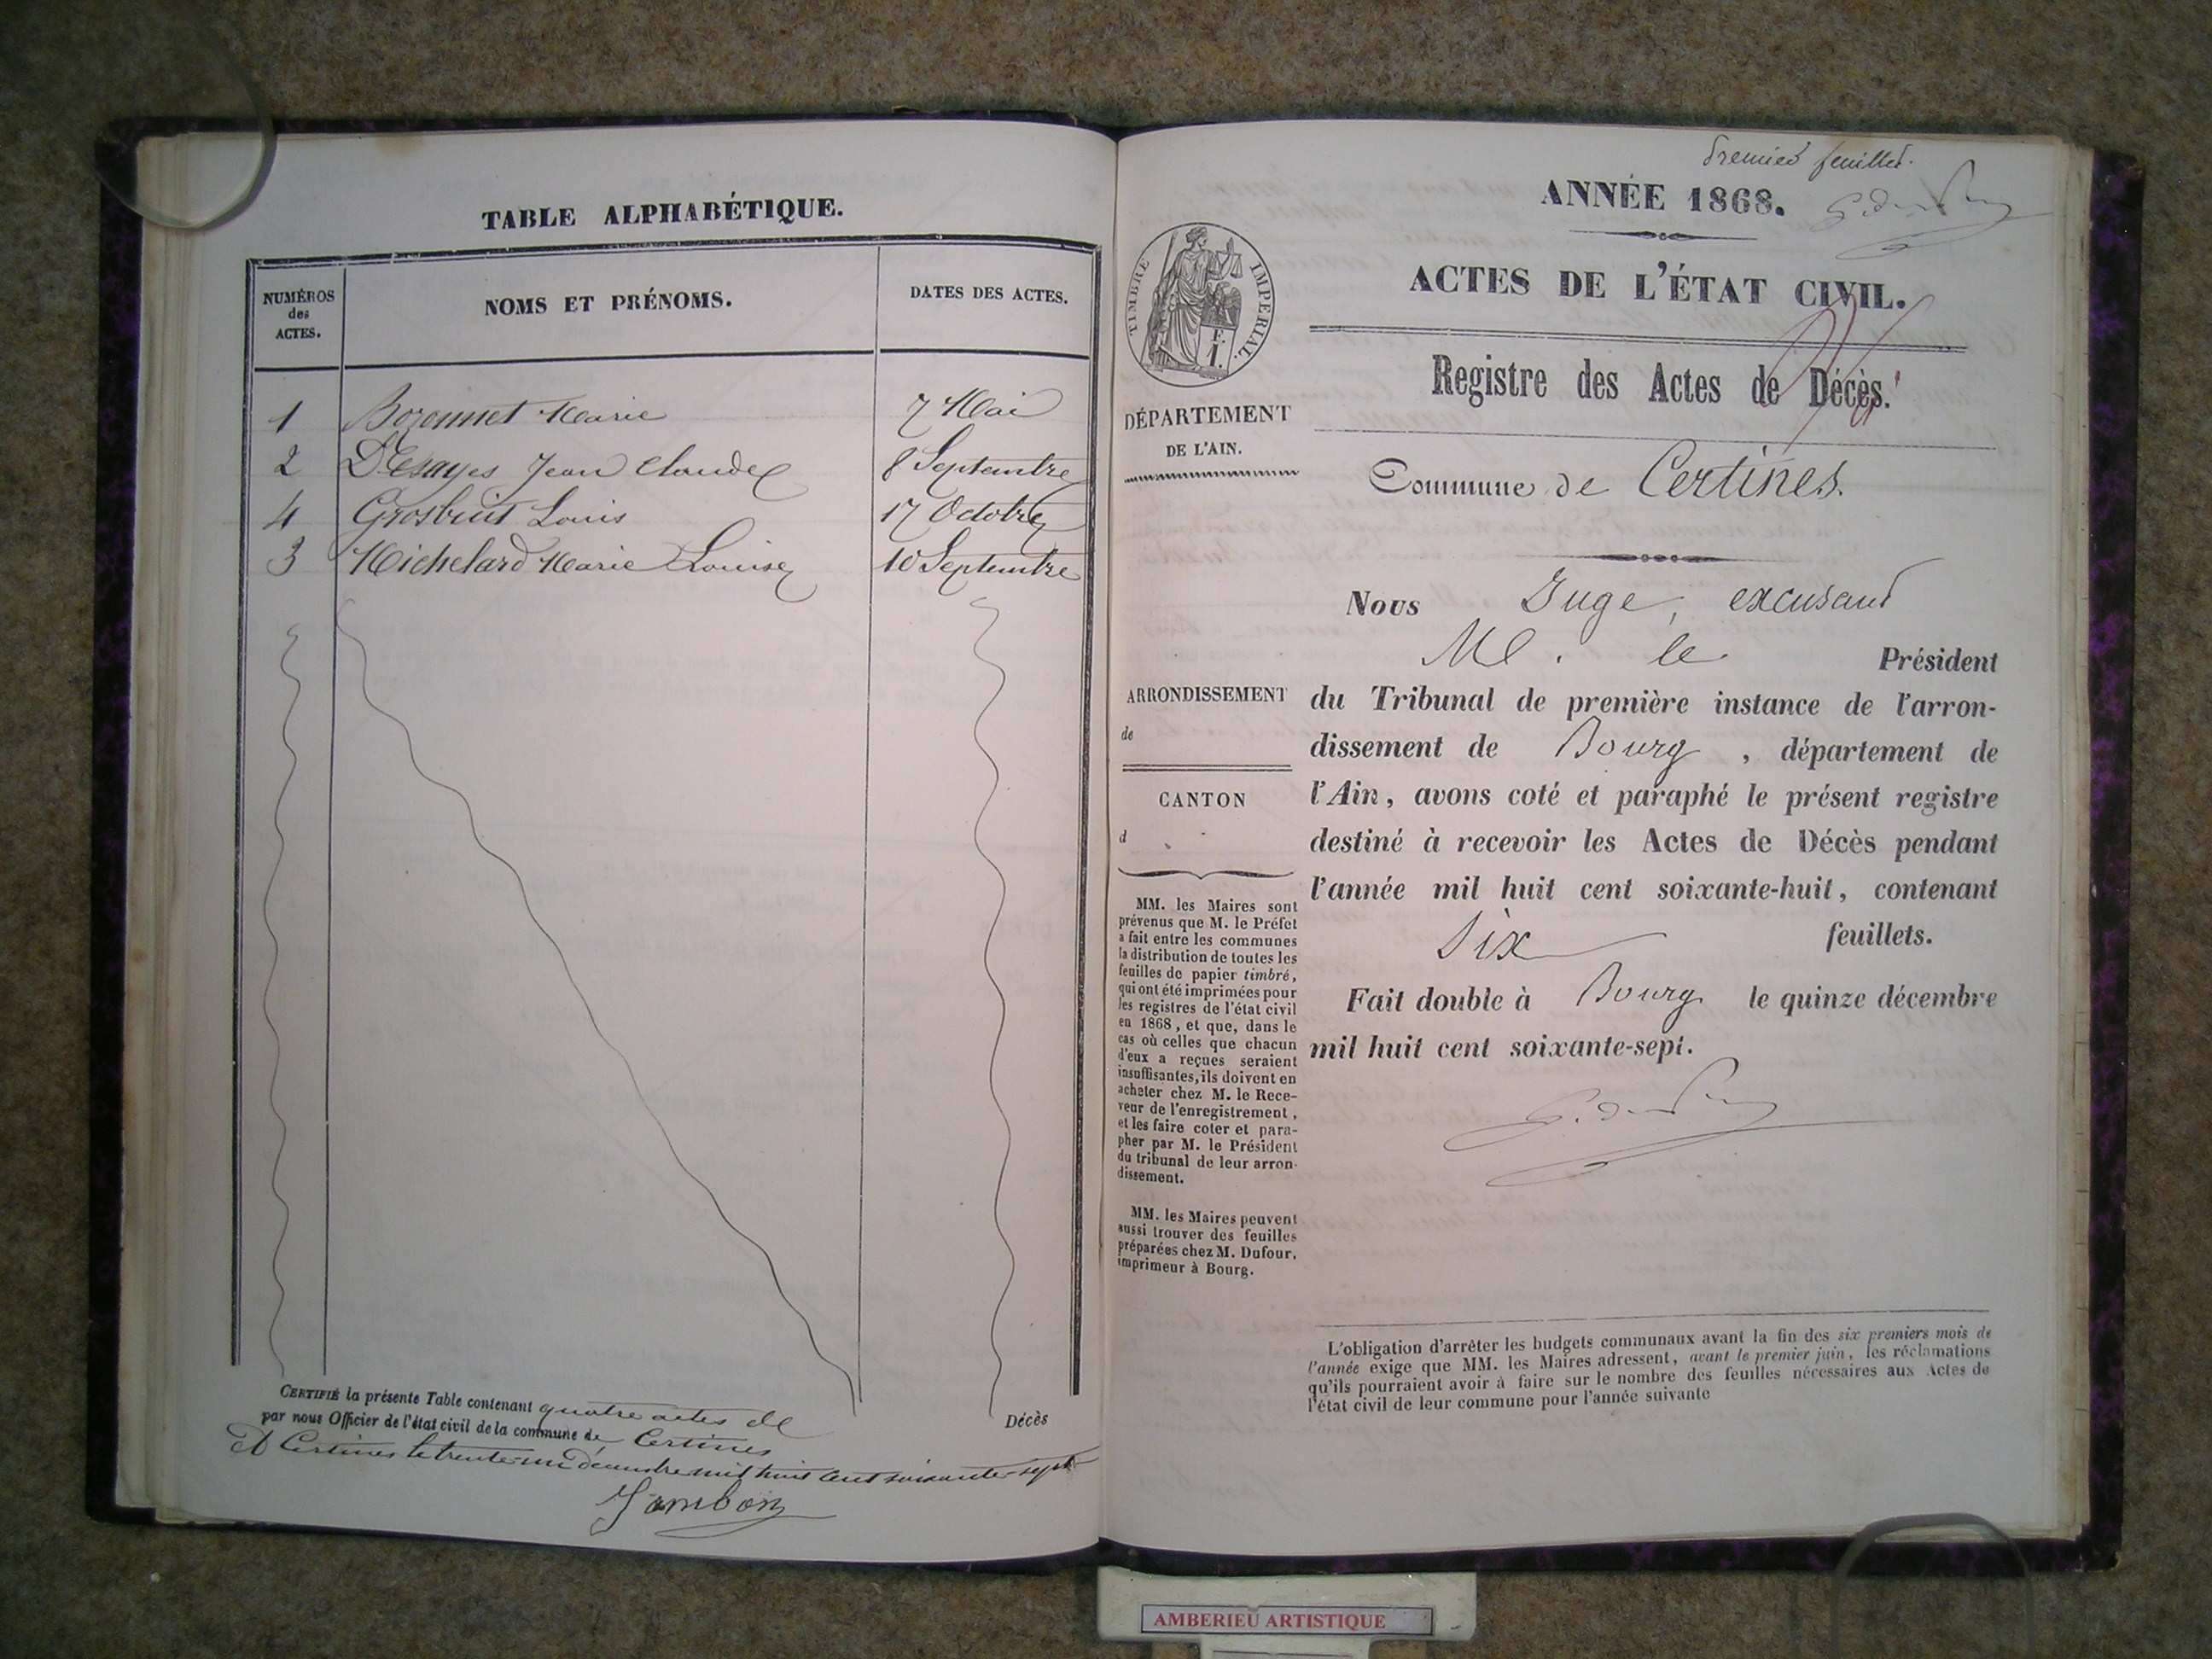 TABLE ALPHABÉTIQUE.
NUMÉROS
des
ACTES.
NOMS ET PRÉNOMS.
DATES DES ACTES.
1 Bozonnet Marie 7 Mai
2 Desayes Jean Claude 8 Septembre
4 Grosbuit Louis 17 Octobre
3 Michelard Marie Louise 10 Septembre
CERTIFIÉ la présente Table contenant quatre actes de
Décès
par nous Officier de l'état civil de la commune de Certines
A Certines le trente un décembre mil huit cent soixante-sept
Jambon
Premier feuillet.
ANNÉE 1868.
ACTES DE L'ÉTAT CIVIL.
Registre des Actes de Décès.
Commune de Certines.
TIMBRE IMPÉRIAL.
DÉPARTEMENT
DE L'AIN.
ARRONDISSEMENT
de
CANTON
d
MM. les Maires sont
prévenus que M. le Préfet
a fait entre les communes
la distribution de toutes les
feuilles de papier timbré,
qui ont été imprimées pour
les registres de l'état civil
en 1868, et que, dans le
cas où celles que chacun
d'eux a reçues seraient
insuffisantes, ils doivent en
acheter chez M. le Rece-
veur de l'enregistrement,
et les faire coter et para-
pher par M. le Président
du tribunal de leur arron-
dissement.
MM. les Maires peuvent
aussi trouver des feuilles
préparées chez M. Dufour,
imprimeur à Bourg.
Nous Juge, excusant
M. le Président
du Tribunal de première instance de l'arron-
dissement de Bourg, département de
l'Ain, avons coté et paraphé le présent registre
destiné à recevoir les Actes de Décès pendant
l'année mil huit cent soixante-huit, contenant
six feuillets.
Fait double à Bourg le quinze décembre
mil huit cent soixante-sept.
L'obligation d'arrêter les budgets communaux avant la fin des six premiers mois de
l'année exige que MM. les Maires adressent, avant le premier juin, les réclamations
qu'ils pourraient avoir à faire sur le nombre des feuilles nécessaires aux Actes de
l'état civil de leur commune pour l'année suivante
AMBERIEU ARTISTIQUE